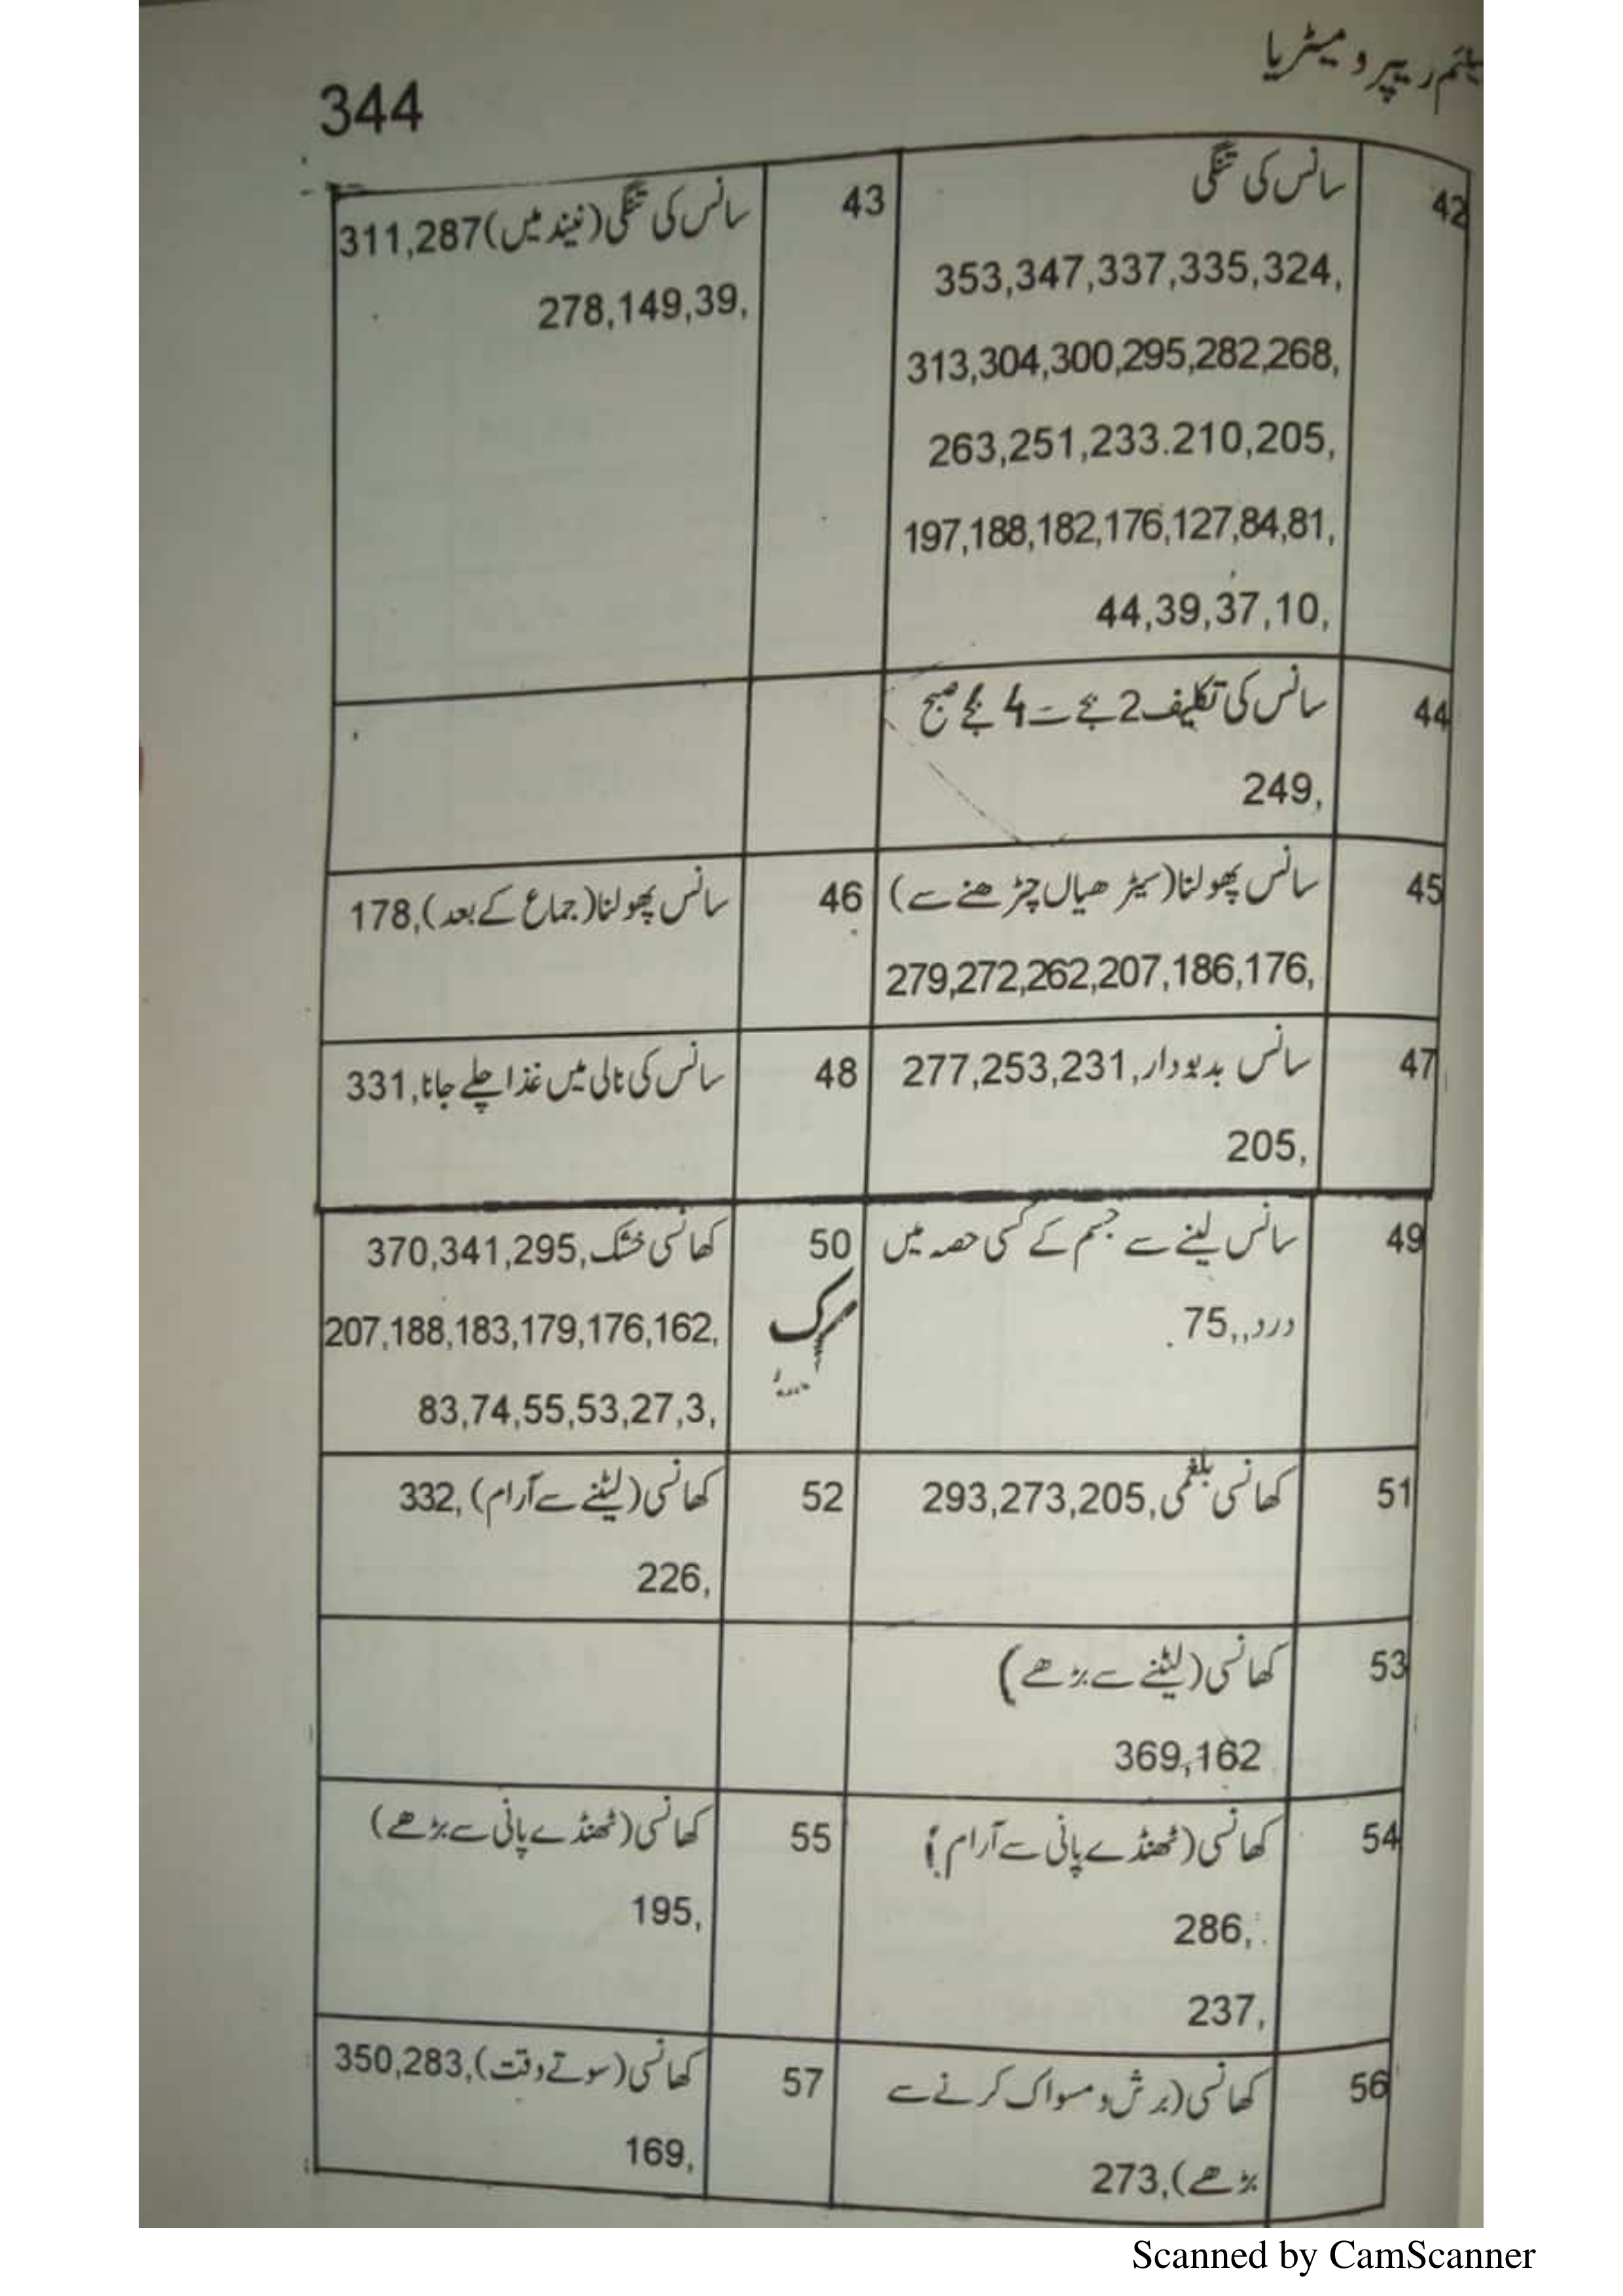 344
42
سانس کی تنگی
353,347,337,335,324,
313,304,300,295,282,268,
263,251,233.210,205,
197,188,182,176,127,84,81,
44,39,37,10,
43
سانس کی تنگی (نیند میں) 311,287
278,149,39,
44
سانس کی تکلیف 2 بجے سے 4 بجے صبح
249,
45
سانس پھولنا (سیڑھیاں چڑھنے سے)
279,272,262,207,186,176,
46
سانس پھولنا (جماع کے بعد) ,178
47
سانس بدبودار ,277,253,231
205,
48
سانس کی نالی میں غذا چلے جانا ,331
49
سانس لینے سے جسم کے کسی حصہ میں
درد ,,75
50
کھانسی خشک ,370,341,295
207,188,183,179,176,162,
83,74,55,53,27,3,
51
کھانسی بلغمی ,293,273,205
52
کھانسی (لیٹنے سے آرام) ,332
226,
53
کھانسی (لیٹنے سے بڑھے)
369,162
54
کھانسی (ٹھنڈے پانی سے آرام)
286,
237,
55
کھانسی (ٹھنڈے پانی سے بڑھے)
195,
56
کھانسی (برش و مسواک کرنے سے
بڑھے) ,273
57
کھانسی (سوتے وقت) ,350,283
169,
Scanned by CamScanner